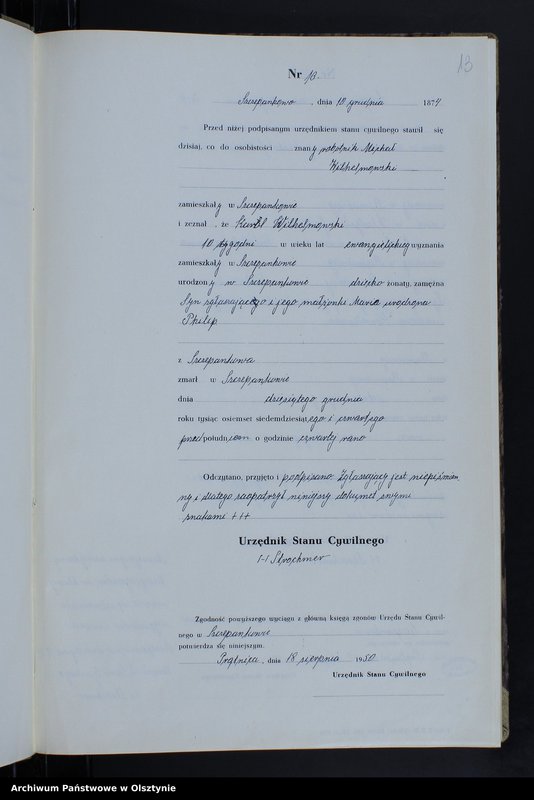 13
Nr 13.
Szczepankowo, dnia 10 grudnia 1874
Przed niżej podpisanym urzędnikiem stanu cywilnego stawił się
dzisiaj, co do osobistości znany robotnik Michał
Wilhelmowski
zamieszkały w Szczepankowie
i zeznał, że Karól Wilhelmowski
10 tygodni w wieku lat ewangielickiego wyznania
zamieszkały w Szczepankowie
urodzony w Szczepankowie dziecko żonaty, zamężna
Syn zgłaszającego i jego małżonki Marie urodzona
Philip
z Szczepankowa
zmarł w Szczepankowie
dnia dziesiątego grudnia
roku tysiąc osiemset siedemdziesiątego i czwartego
przed południem o godzinie czwartej rano
Odczytano, przyjęto i podpisano. Zgłaszający jest niepiśmien
ny i dlatego zaopatrzył niniejszy dokumet swymi
znakami +++
Urzędnik Stanu Cywilnego
Zgodność powyższego wyciągu z główną księgą zgonów Urzędu Stanu Cywil-
nego w Szczepankowie
potwierdza się niniejszym.
Prątnica, dnia 18 sierpnia 1950
Urzędnik Stanu Cywilnego
Archiwum Państwowe w Olsztynie